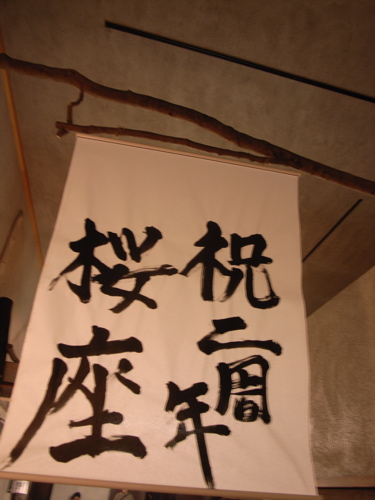 祝二周年
桜座